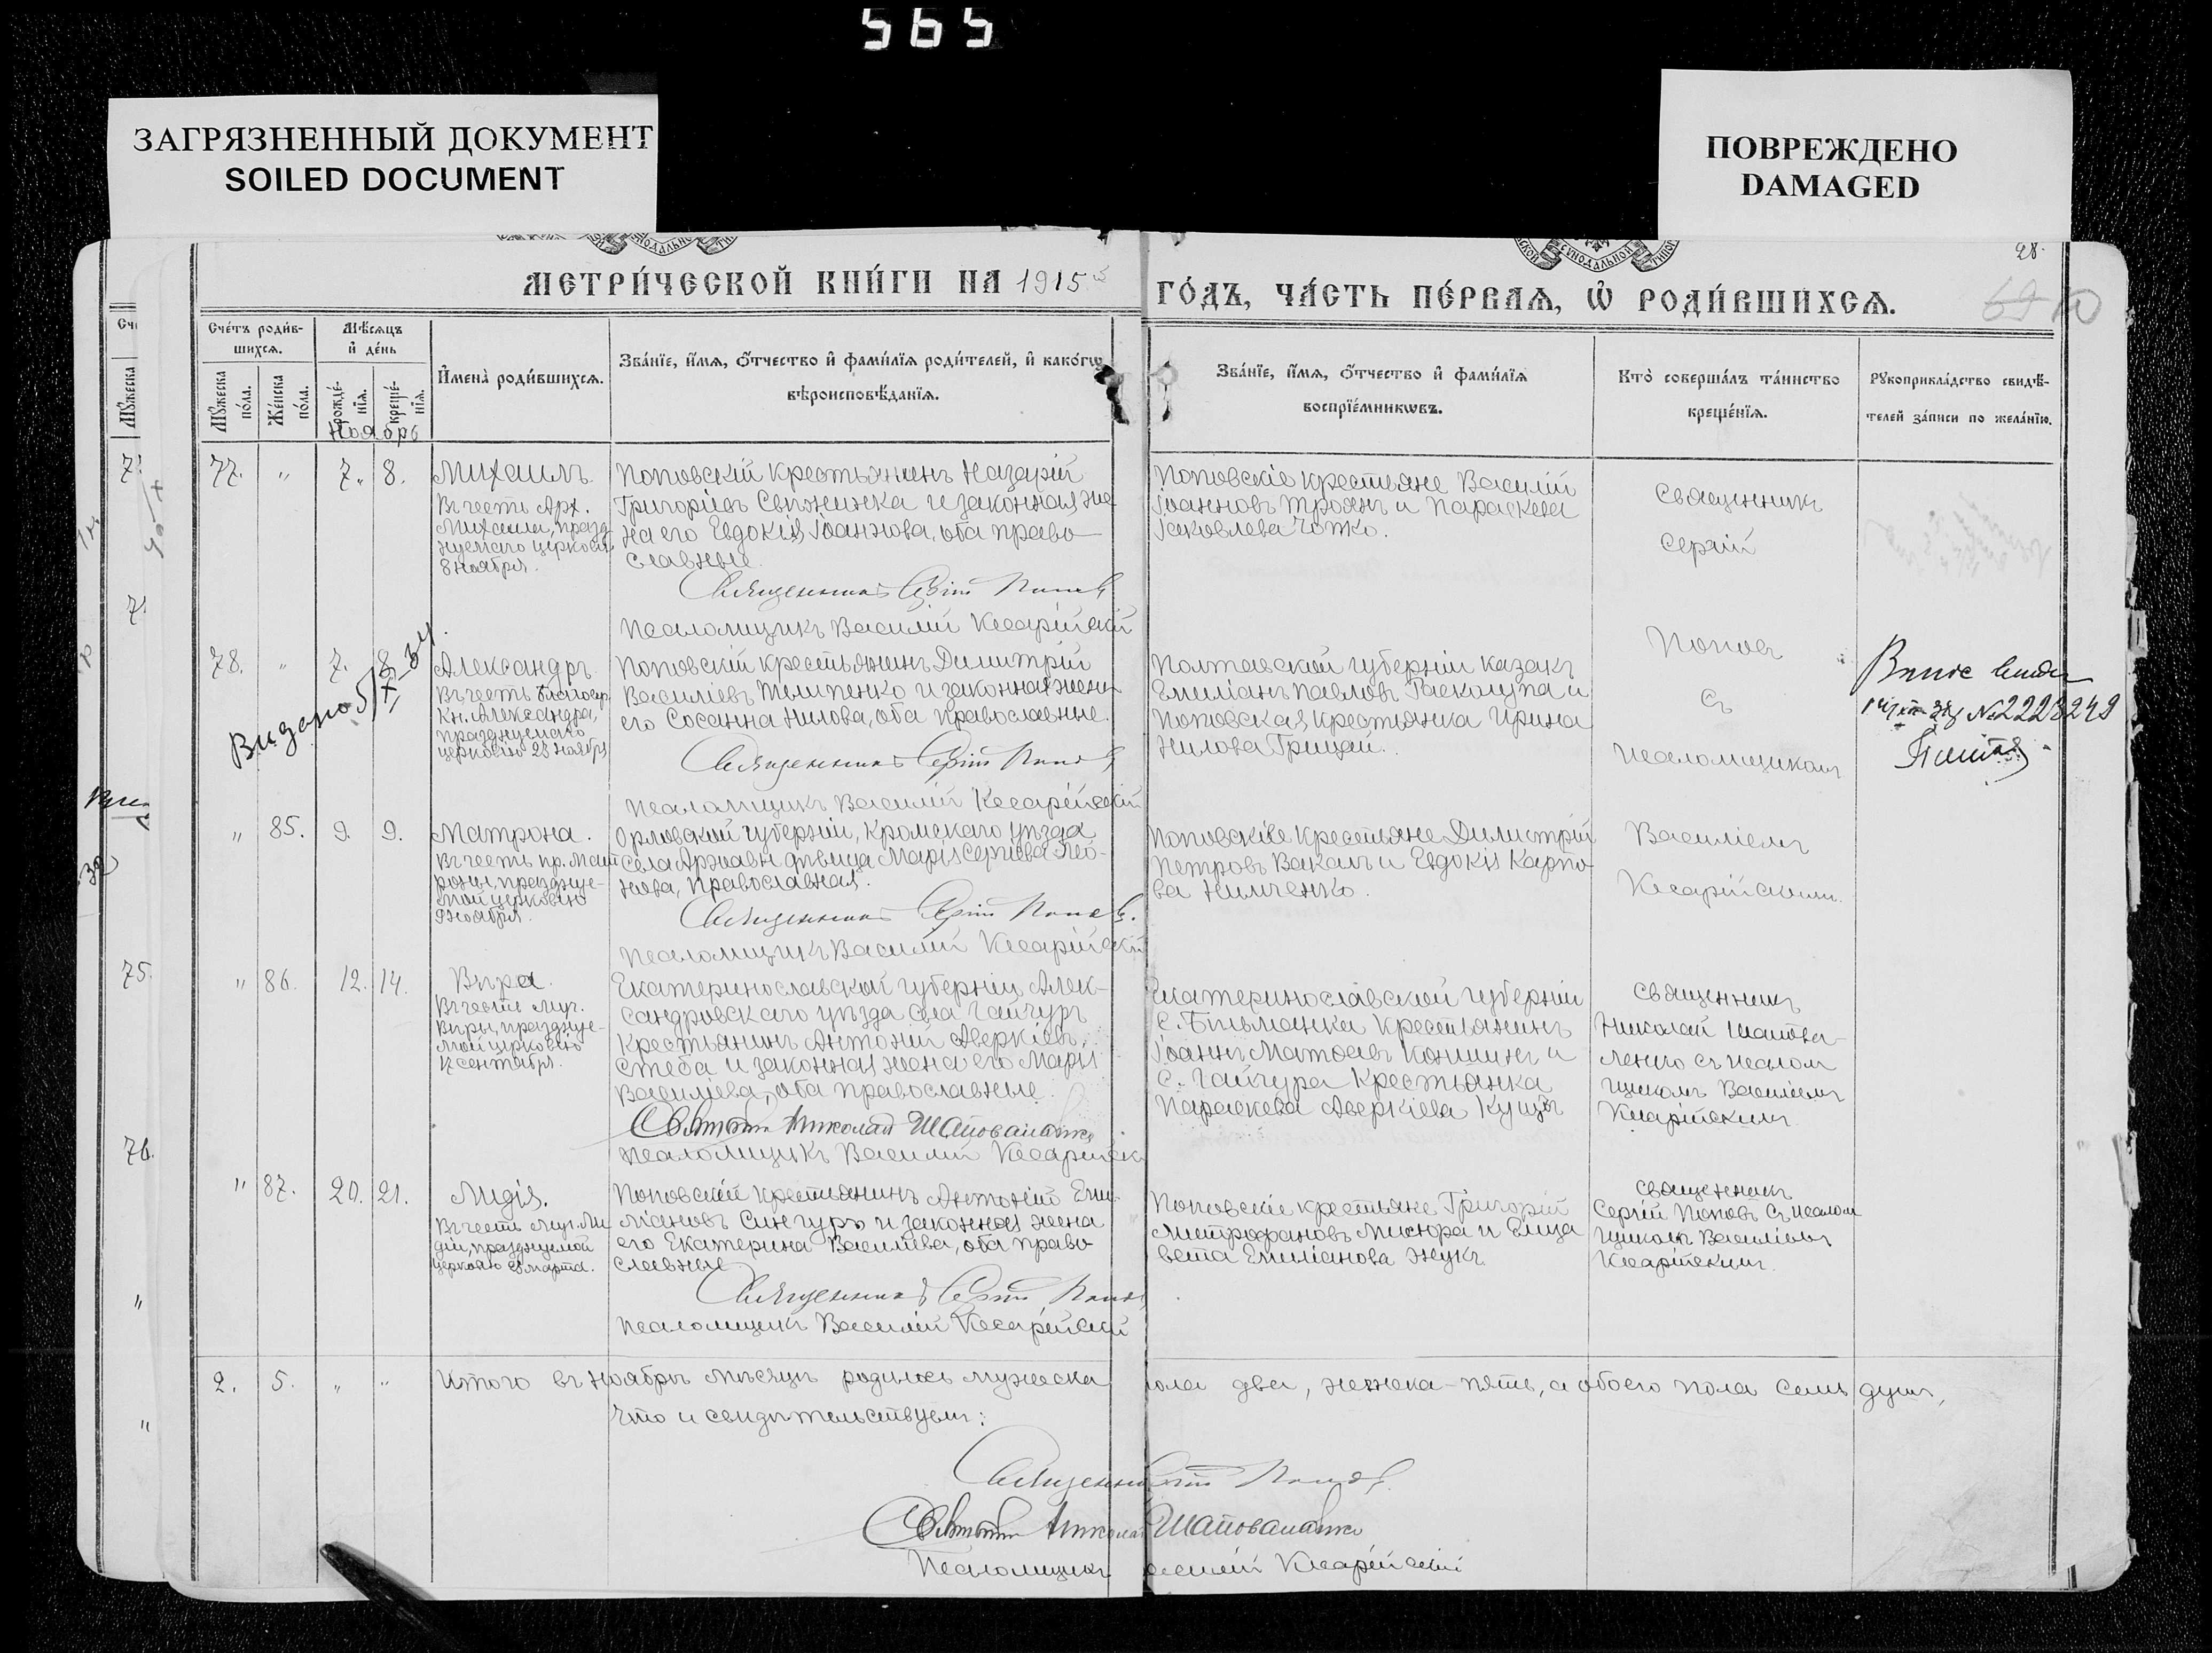 565
ЗАГРЯЗНЕННЫЙ ДОКУМЕНТ
SOILED DOCUMENT
ПОВРЕЖДЕНО
DAMAGED
28.
МЕТРИ́ЧЕСКОЙ КНИ́ГИ НА 1915
ГО́ДЪ, ЧА́СТЬ ПЕ́РВАЯ, Ѡ҆ РОДИ́ВШИХСЯ.
Сче́тъ роди́в-
шихся.
Мѣ́сяцъ
и҆ де́нь
И҆мена̀ роди́вшихся.
Зва́нїе, и҆́мя, ѻ҆́тчество и҆ фами́лїя роди́телей, и҆ како́гѡ
вѣроисповѣ́данїя.
Зва́нїе, и҆́мя, ѻ҆́тчество и҆ фами́лїя
воспрїе́мникѡвъ.
Кто̀ соверша́лъ та́инство
креще́нїя.
Рꙋкоприкла́дство свидѣ́-
телей за́писи по жела́нїю.
Мꙋ́жеска
по́ла.
Же́нска
по́ла.
рожде́-
нїя.
креще́-
нїя.
Ноябрь
77. " 7. 8. Михаилъ.
Въ честь Арх.
Михаила, празд
нуемаго церковію
8 ноября.
Поповскій крестьянинъ Назарій
Григоріевъ Свѣженка и законная же-
на его Евдокія Іоаннова, оба право-
славные.
Священникъ Сергій Поповъ
Псаломщикъ Василій Кесарійскій
Поповскіе крестьяне Василій
Іоанновъ Троянъ и Параскева
Іаковлева Чотко.
Священникъ
Сергій
Поповъ
съ
псаломщикомъ
Василіемъ
Кесарійскимъ.
78. " 7. 8. Александръ.
Въ честь благовѣр.
Кн. Александра,
празднуемаго
церковію 23 ноября
Видано
Поповскій крестьянинъ Димитрій
Василіевъ Телипенко и законная жена
его Сосанна Нилова, оба православные.
Священникъ Сергій Поповъ
Псаломщикъ Василій Кесарійскій
Полтавской губерніи казакъ
Емиліанъ Павловъ Расколупа и
Поповская крестьянка Ирина
Нилова Грицай.
№2223249
" 85. 9. 9. Матрона.
Въ честь пр. Мат
роны, праздруе-
мой церковію
9 ноября.
Орловской губерніи, Кромскаго уѣзда
села дѣвица Марія Сергіева
нова, православная.
Священникъ Сергій Поповъ.
Псаломщикъ Василій Кесарійскій
Поповскіе крестьяне Димитрій
Петровъ Вакалъ и Евдокія Карпо-
ва Нимченко.
" 86. 12. 14. Вѣра.
Въ честь муч.
Вѣры, празднуе-
мой церковію
17 сентября.
Екатеринославской губерніи, Алек-
сандровскаго уѣзда села Гайчуръ
крестьянинъ Антоній Аверкіевъ
Стеба и законная жена его Марія
Василіева, оба православные.
Николай Шаповаленко
Псаломщикъ Василій Кесарійскій
Екатеринославской губерніи
с. Бѣльманки крестьянинъ
Іоаннъ Матѳеевъ Коншинъ и
с. Гайчура крестьянка
Параскева Аверкіева Куцъ
Священникъ
Николай Шапова-
ленко съ псалом
щикомъ Василіемъ
Кесарійскимъ
" 87. 20. 21. Лидія.
Въ честь муч. Ли
діи, празднуемой
церковію 23 марта.
Поповскій крестьянинъ Антоній Еми-
ліановъ Сингуръ и законная жена
его Екатерина Василіева, оба право-
славные
Священникъ Сергій Поповъ
Псаломщикъ Василій Кесарійскій
Поповскіе крестьяне Григорій
Митрофановъ Мисюра и Елиса
вета Емиліанова Жукъ.
Священникъ
Сергій Поповъ съ псалом
щикомъ Василіемъ
Кесарійскимъ.
2. 5. " " Итого въ ноябрѣ мѣсяцѣ родилось мужеска пола два, женска-пять, а обоего пола семь душъ,
Что и свидѣтельствуемъ:
Священникъ Сергій Поповъ.
Николай Шаповаленко
Псаломщикъ Василій Кесарійскій